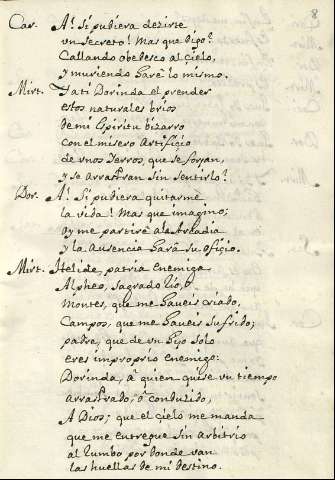 8
Car. A! Si pudiera dezirte
un secreto! Mas que digo?
Callando obedesco al çielo,
y muriendo harè lo mismo.
Mirt. Y a ti Dorinda el prender
estos naturales brios
de mi Espiritu bizarro
con el misero Artifiçio
de unos Yerros, que se forjan,
y se arrastran sin sentirlo?
Dor. A! Si pudiera quitarme
la vida! Mas que imagino;
oy me partirè a la Arkadia
y la Ausencia harà su ofiçio.
Mirt. Helide, patria enemiga
Alpheo, sagrado rio,
Montes, que me haveis criado,
Campos, que me haveis sufrido;
padre, que de un hijo solo
eres improprio enemigo:
Dorinda, â quien quise un tiempo
arrastrado, ô conduzido,
A Dios; que el cielo me manda
que me entregue sin arbitrio
al rumbo por donde van
las huellas de mi destino.